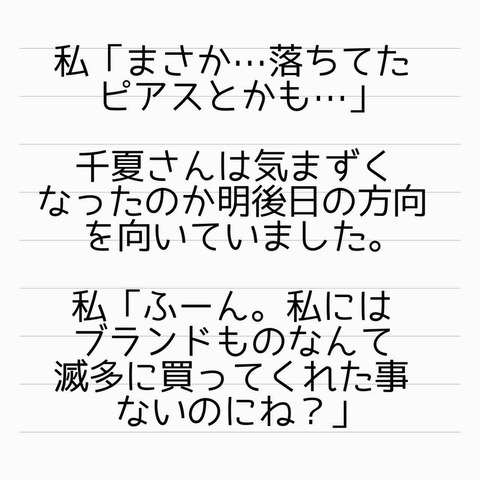 私「まさか…落ちてた
ピアスとかも…」
千夏さんは気まずく
なったのか明後日の方向
を向いていました。
私「ふーん。私には
ブランドものなんて
滅多に買ってくれた事
ないのにね？」